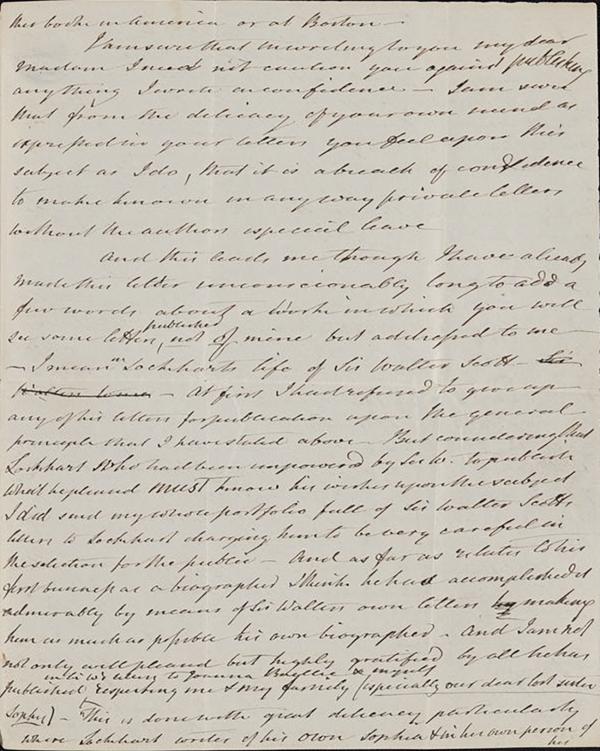 this book in America or at Boston —
I am sure that in writing to you my dear
Madam I need not caution you against publishing
anything I write in confidence — I am sure
that from the delicacy of your own mind as
expressed in your letters you feel upon this
subject as I do, that it is a breach of confidence
to make known in any way private letters
without the authors especial leave
And this leads me though I have already
made this letter unconscionably long to add a
few words about a work in which you will
see some letters, published not of mine but addressed to me —
— I mean Mr Lockharts life of Sir Walter Scott — Sir
Walter — At first I had refused to give up
any of his letters for publication upon the general
principle that I have stated above — But considering that
Lockhart who had been empowered by Sir W. to publish
what he pleased must know his wishes upon the subject
I did send my whole portfolio full of Sir Walter Scotts
letters to Lockhart charging him to be very careful in
the selection for the public — And as far as relates to his
first business as a biographer I think he has accomplished it
admirably by means of Sir Walters own letters by making
him as much as possible his own biographer — And I am not
not only well pleased but highly gratified by all he has
in Sir W's letters to Joanna Baillie & myself
published respecting me & my family (especially our dear lost sister
Sophy) — This is done with great delicacy particularly
where Lockhart writes of his own Sophia & in her own person of
her